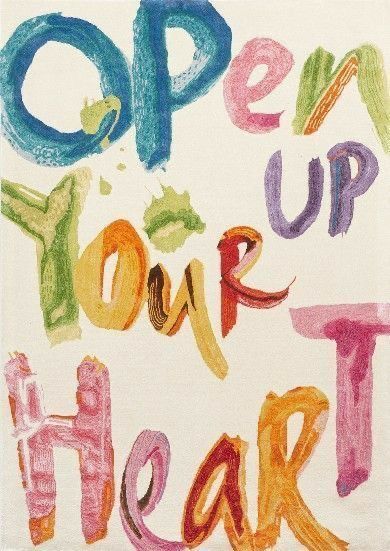 OPen
UP
YOuR
HeaRT